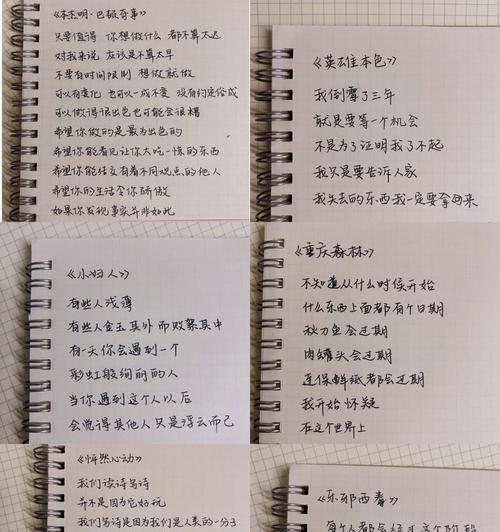 《本杰明·巴顿奇事》
只要值得 你想做什么 都不算太迟
对我来说 应该是不算太早
不要有时间限制 想做就做
可以有变化 也可以一成不变 没有约定俗成
可以做得很出色也可能会很糟
希望你做的是最为出色的
希望你能看见让你大吃一惊的东西
希望你能结交有着不同观点的他人
希望你的生活令你骄傲
如果你发现事实并非如此
《英雄本色》
我倒霉了三年
就是要等一个机会
不是为了证明我了不起
我只是要告诉人家
我失去的东西我一定要拿回来
《小妇人》
有些人浅薄
有些人金玉其外而败絮其中
有一天你会遇到一个
彩虹般绚丽的人
当你遇到这个人以后
会觉得其他人只是浮云而已
《重庆森林》
不知道从什么时候开始
什么东西上面都有个日期
秋刀鱼会过期
肉罐头会过期
连保鲜纸都会过期
我开始怀疑
在这个世界上
《怦然心动》
我们读诗写诗
并不是因为它好玩
我们写诗是因为我们是人类的一分子
《东邪西毒》
每个人都会经过这个阶段